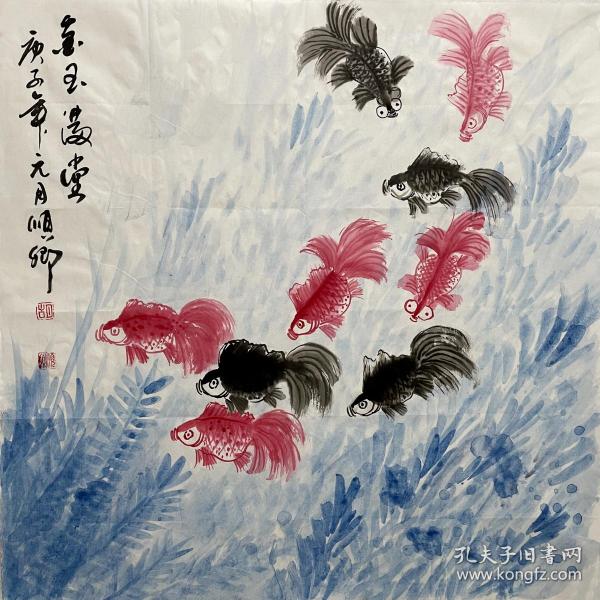 金玉满堂
庚子年元月顺卿
孔夫子旧书网
www.kongfz.com